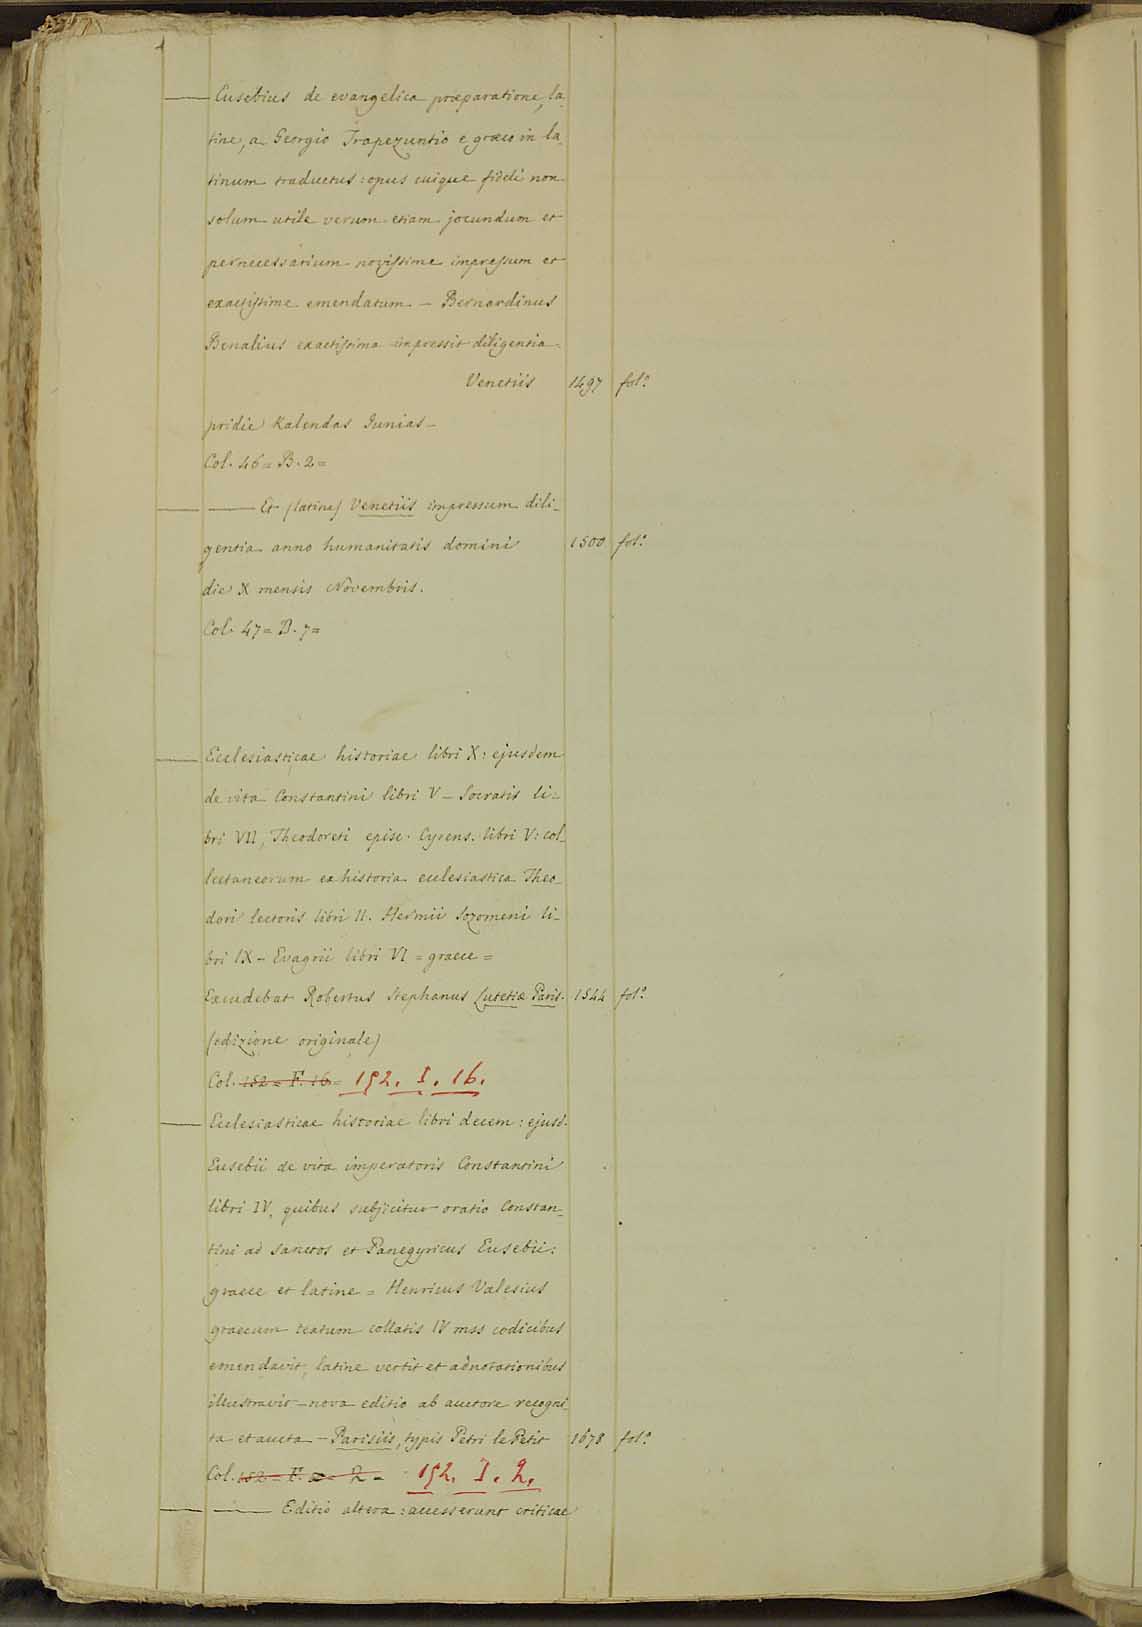 —— Eusebius de evangelica præparatione, la-
tine, a Georgio Trapezuntio e græco in la-
tinum traductus: opus cuique fideli non
solum utile verum etiam jocundum et
pernecessarium novissime impressum et
exactissime emendatum — Bernardinus
Benalius exactissima impressit diligentia.
Venetiis 1497 fol.º
pridie Kalendas Junias —
Col. 46 = B. 2 =
—— —— Et (latine) Venetiis impressum dili-
gentia anno humanitatis domini 1500 fol.º
die X mensis Novembris.
Col. 47 = B. 7 =
—— Ecclesiasticae historiae libri X: ejusdem
de vita Constantini libri V — Socratis li-
bri VII, Theodoreti episc. Cyrens. libri V: col-
lectaneorum ex historia ecclesiastica Theo-
dori lectoris libri II. Hermii Sozomeni li-
bri IX — Evagrii libri VI = graece =
Excudebat Robertus Stephanus Lutetiæ Paris. 1544 fol.º
(edizione originale)
Col. 152 = F. 16 = 192. I. 16.
—— Ecclesiasticae historiae libri decem: ejusd.
Eusebii de vita imperatoris Constantini
libri IV, quibus subjicitur oratio Constan-
tini ad sanctos et Panegyricus Eusebii:
graece et latine = Henricus Valesius
graecum textum collatis IV mss codicibus
emendavit, latine vertit et adnotationibus
illustravit — nova editio ab auctore recogni-
ta et aucta — Parisiis, typis Petri le Petit 1678 fol.º
Col. 152 = F. = 2 = 192. I. 2.
—— —— Editio altera: accesserunt criticae